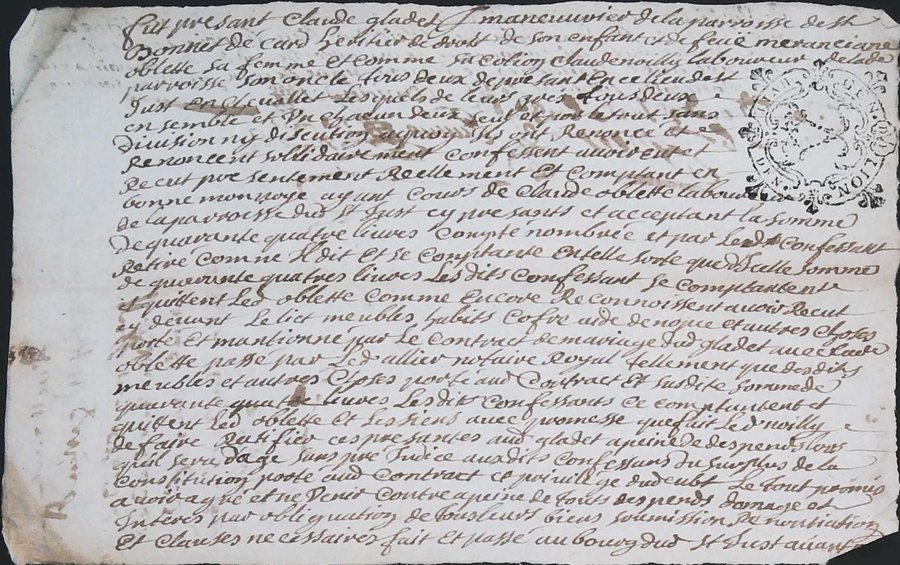 fut presant Claude gladet maneuvrier de la parroisse de St
Bonnet de Card heritier de droit de son enfant et de feüe meranciane
oblette sa femme et comme sa cotion Claude noilly laboureur de lade
parroisse son oncle tous deux de presant en ce lieu de St
Just en Chevallet Lesquels de leurs gres tous deux
ensemble et Un chacun deux seul et pour le tout sans
Division ny discution a quoy ils ont Renoncé et
Renoncent solidairement Confessent avoir eu et
Recut presentement Reellement et Comptant en
bonne monnoye ayant Cours de Claude oblette laboureur
de la parroisse dud St Just cy presants et acceptant la somme
De quarante quatre livres Compté nombrée et par Led Confessant
Retiré Comme Il dit et se Comptante En telle sorte que dicelle somme
de quarante quatres livres Les dits Confessant se Comptantent
et quittent Led oblette Comme Encore Reconnoissent avoir Recut
cy devant Le lict meubles habits Cofre et autres Choses
porté Et mantionné par Le Contract de mariage dud gladet avec lade
oblette passé par Led allier notaire Royal tellement que desdits
meubles et autres Choses porté aud Contract Et susdite somme de
quarante quatre livres Les dits Confessants Ce Comptantent et
quittent Led oblette Et Les siens avec promesse que fait Led noilly
de faire Ratifier ces presantes aud gladet a peine de despends lors
quil sera dage sans prejudice auxdits Confessans du surplus de la
Constitution porté aud Contract et privilege dud eubt Le tout promis
avoir agreé et ne Venir Contre a peine de touts despends domage et
Interes par obliguation de tous leurs biens soumission Renontiation
Et Clauses necessaires fait Et passé au bourg dud St Just avant
GEN
LION